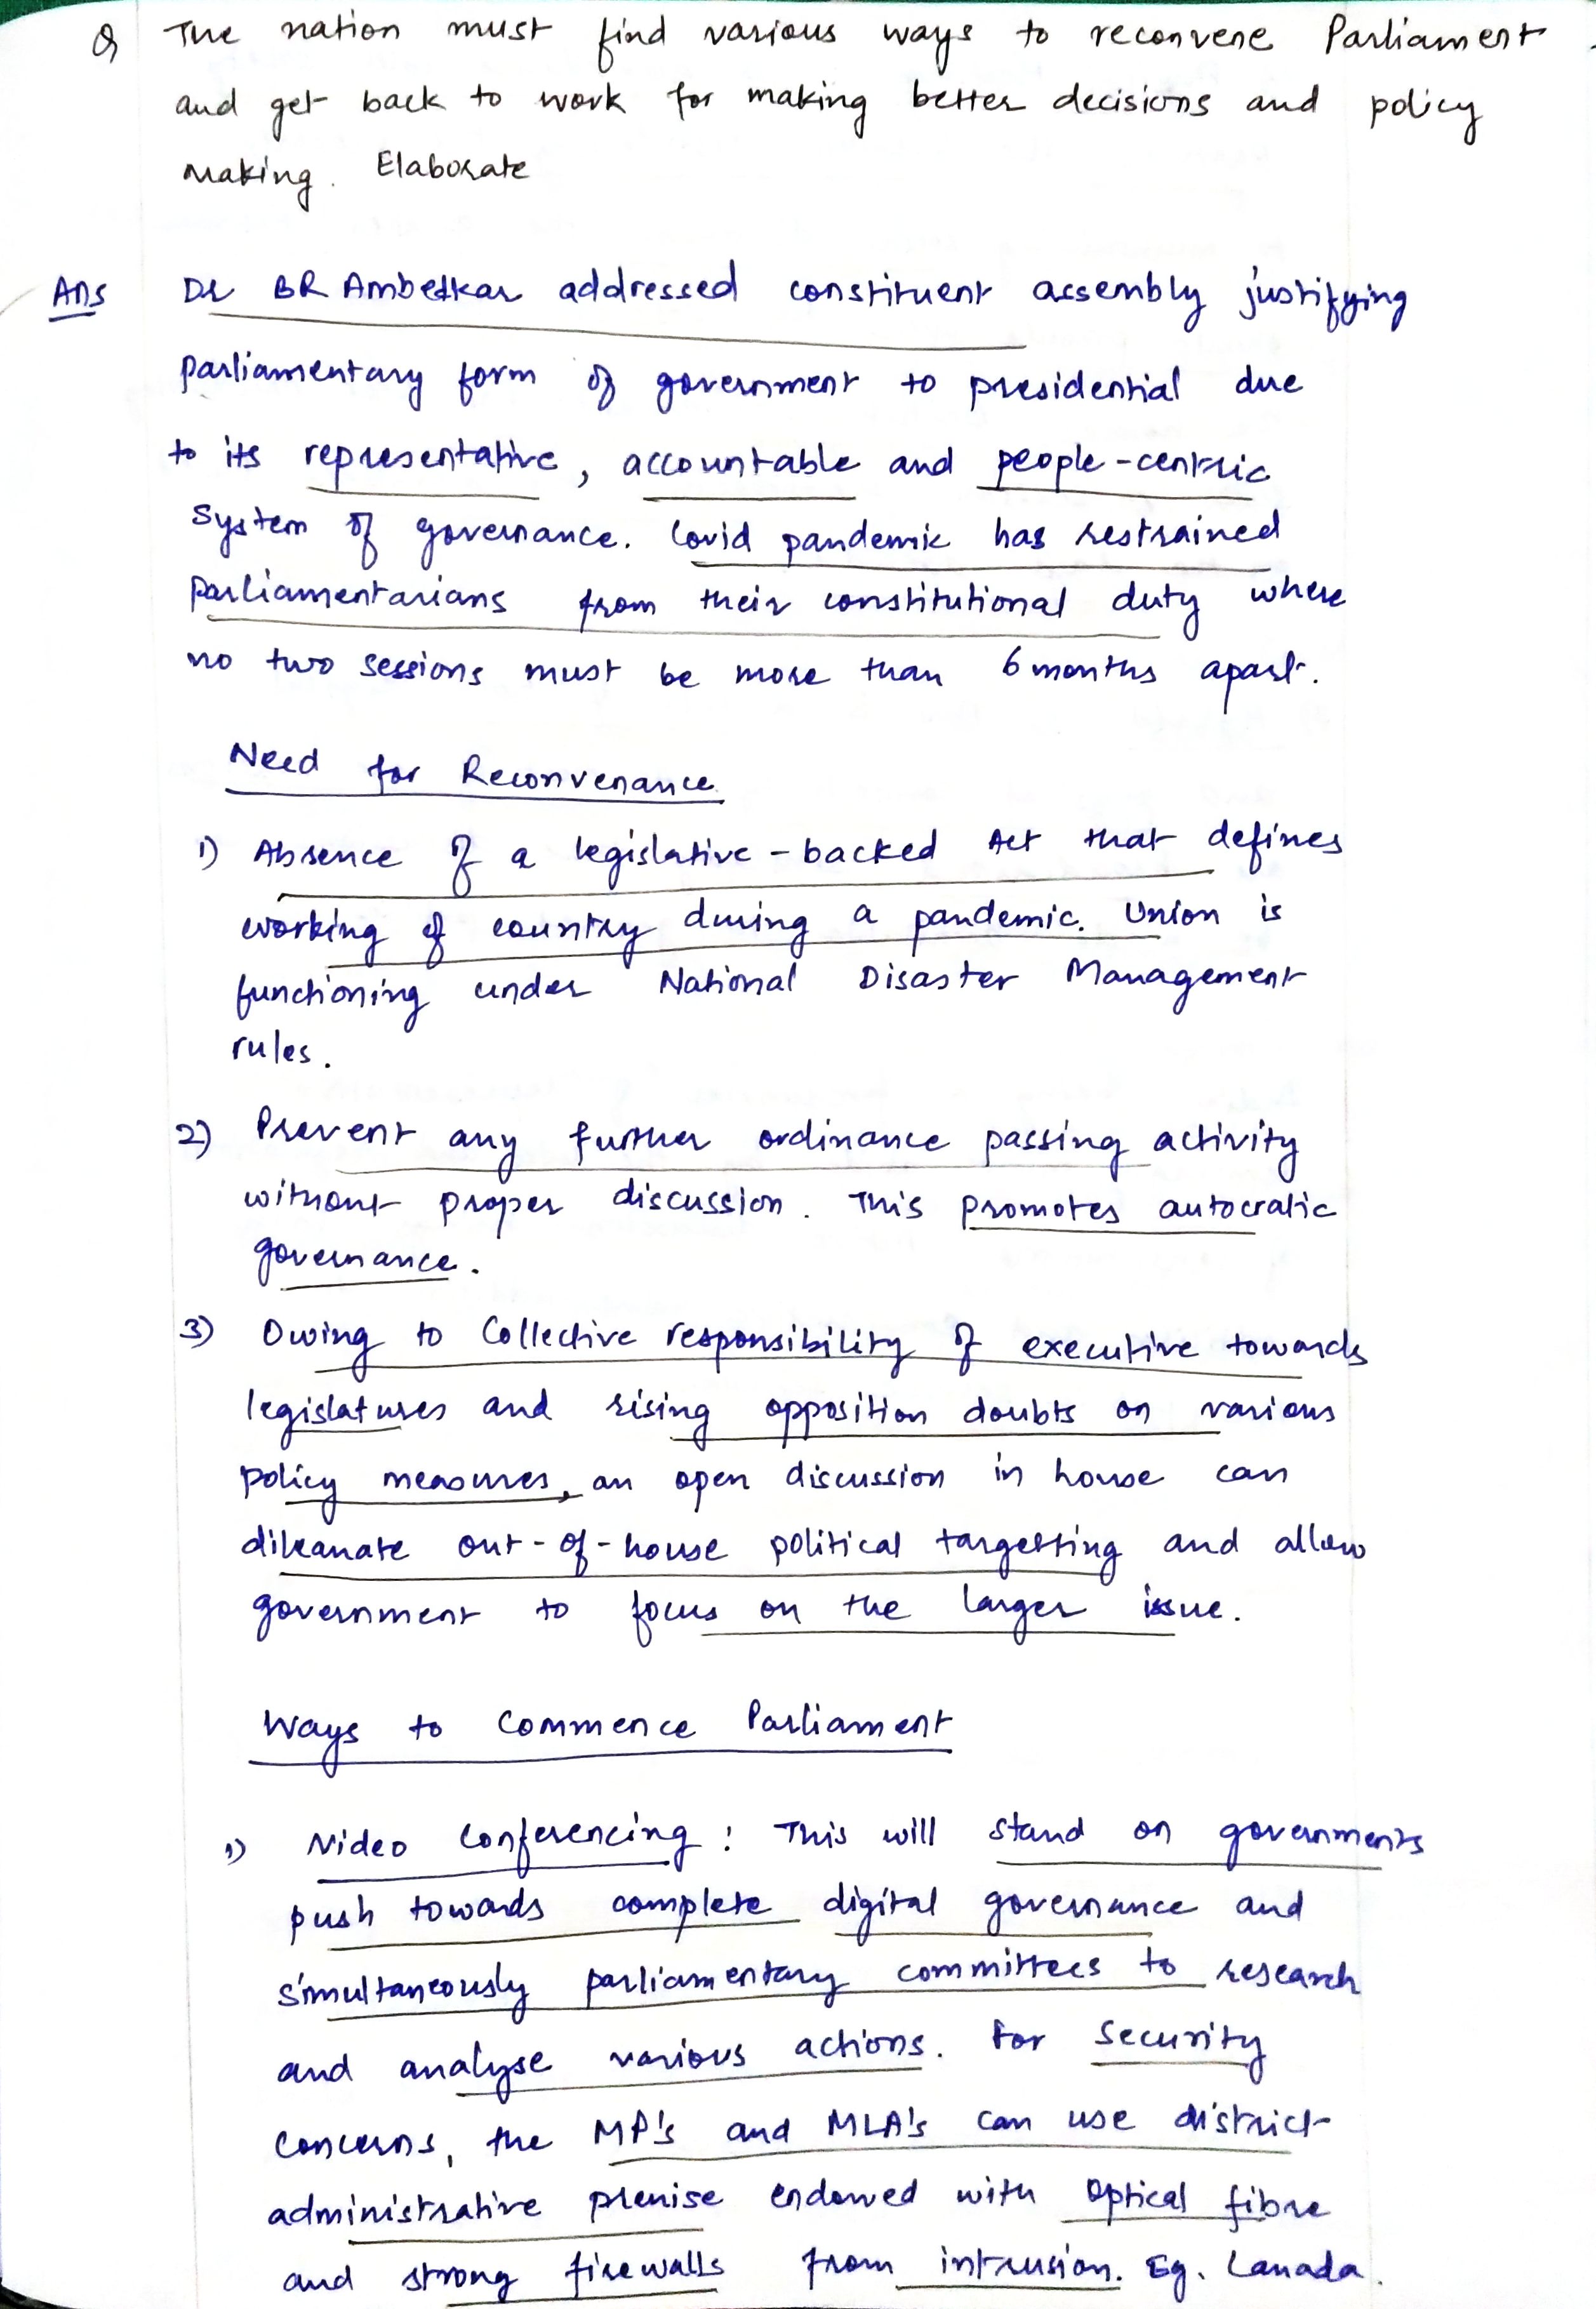 Q The nation must find various ways to reconvene Parliament
and get back to work for making better decisions and policy
making. Elaborate
Ans Dr BR Ambedkar addressed constituent assembly justifying
parliamentary form of government to presidential due
to its representative, accountable and people-centric
system of governance. Covid pandemic has restrained
parliamentarians from their constitutional duty where
no two sessions must be more than 6 months apart.
Need for Reconvenance
1) Absence of a legislative-backed Act that defines
working of country during a pandemic. Union is
functioning under National Disaster Management
rules.
2) Prevent any further ordinance passing activity
without proper discussion. This promotes autocratic
governance.
3) Owing to Collective responsibility of executive towards
legislatures and rising opposition doubts on various
policy measures, an open discussion in house can
out-of-house political targetting and allow
government to focus on the larger issue.
Ways to Commence Parliament
1) Video Conferencing: This will stand on governments
push towards complete digital governance and
simultaneously parliamentary committees to research
and analyse various actions. For security
concerns, the MP's and MLA's can use district
administrative premise endowed with optical fibre
and strong firewalls from intrusion. Eg. Canada.